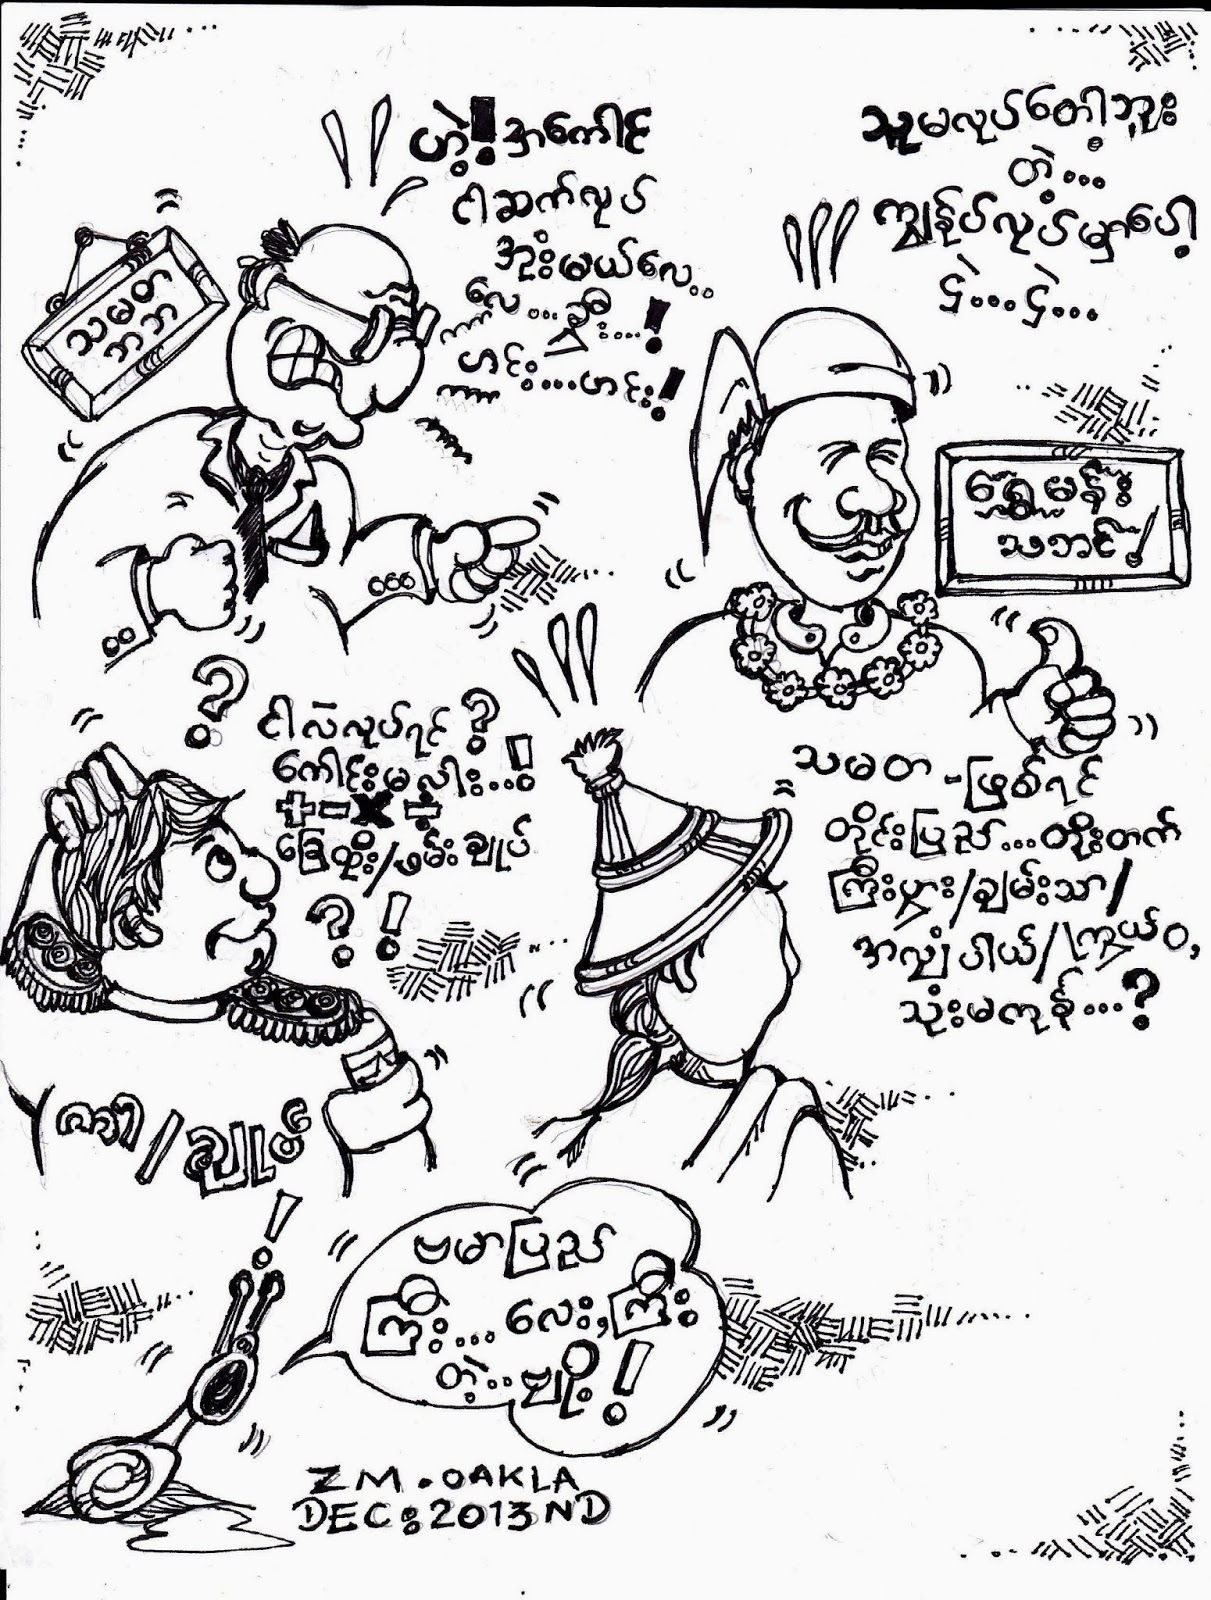 ဟဲ့! အကောင်
ငါဆက်လုပ်
အုံးမယ်လေ..
လေ...ခွီး....!
ဟင်း...ဟင်း!
သမတ
ဘဘ
သူမလုပ်တော့ဘူး
တဲ့...
ကျွန်ုပ်လုပ်မှာပေါ့
ဌဲ...ဌဲ...
ရွှေမန်း
သဘင်!
?
ငါလဲလုပ်ရင်?
ကောင်းမလား...!
+ - x ÷
ခြေထိုး/ဖမ်းချုပ်
? !
ကာ/ချုပ်
သမတ - ဖြစ်ရင်
တိုင်းပြည်...တိုးတက်
ကြီးပွား/ချမ်းသာ/
အလျှံပါယ်/ကြွယ်ဝ,
သုံးမကုန်...?
!
ဗမာပြည်
ကြီး... လေး,ကြီး
တဲ့.. ဗျိုး!
ZM.OAKLA
DEC:2013 ND